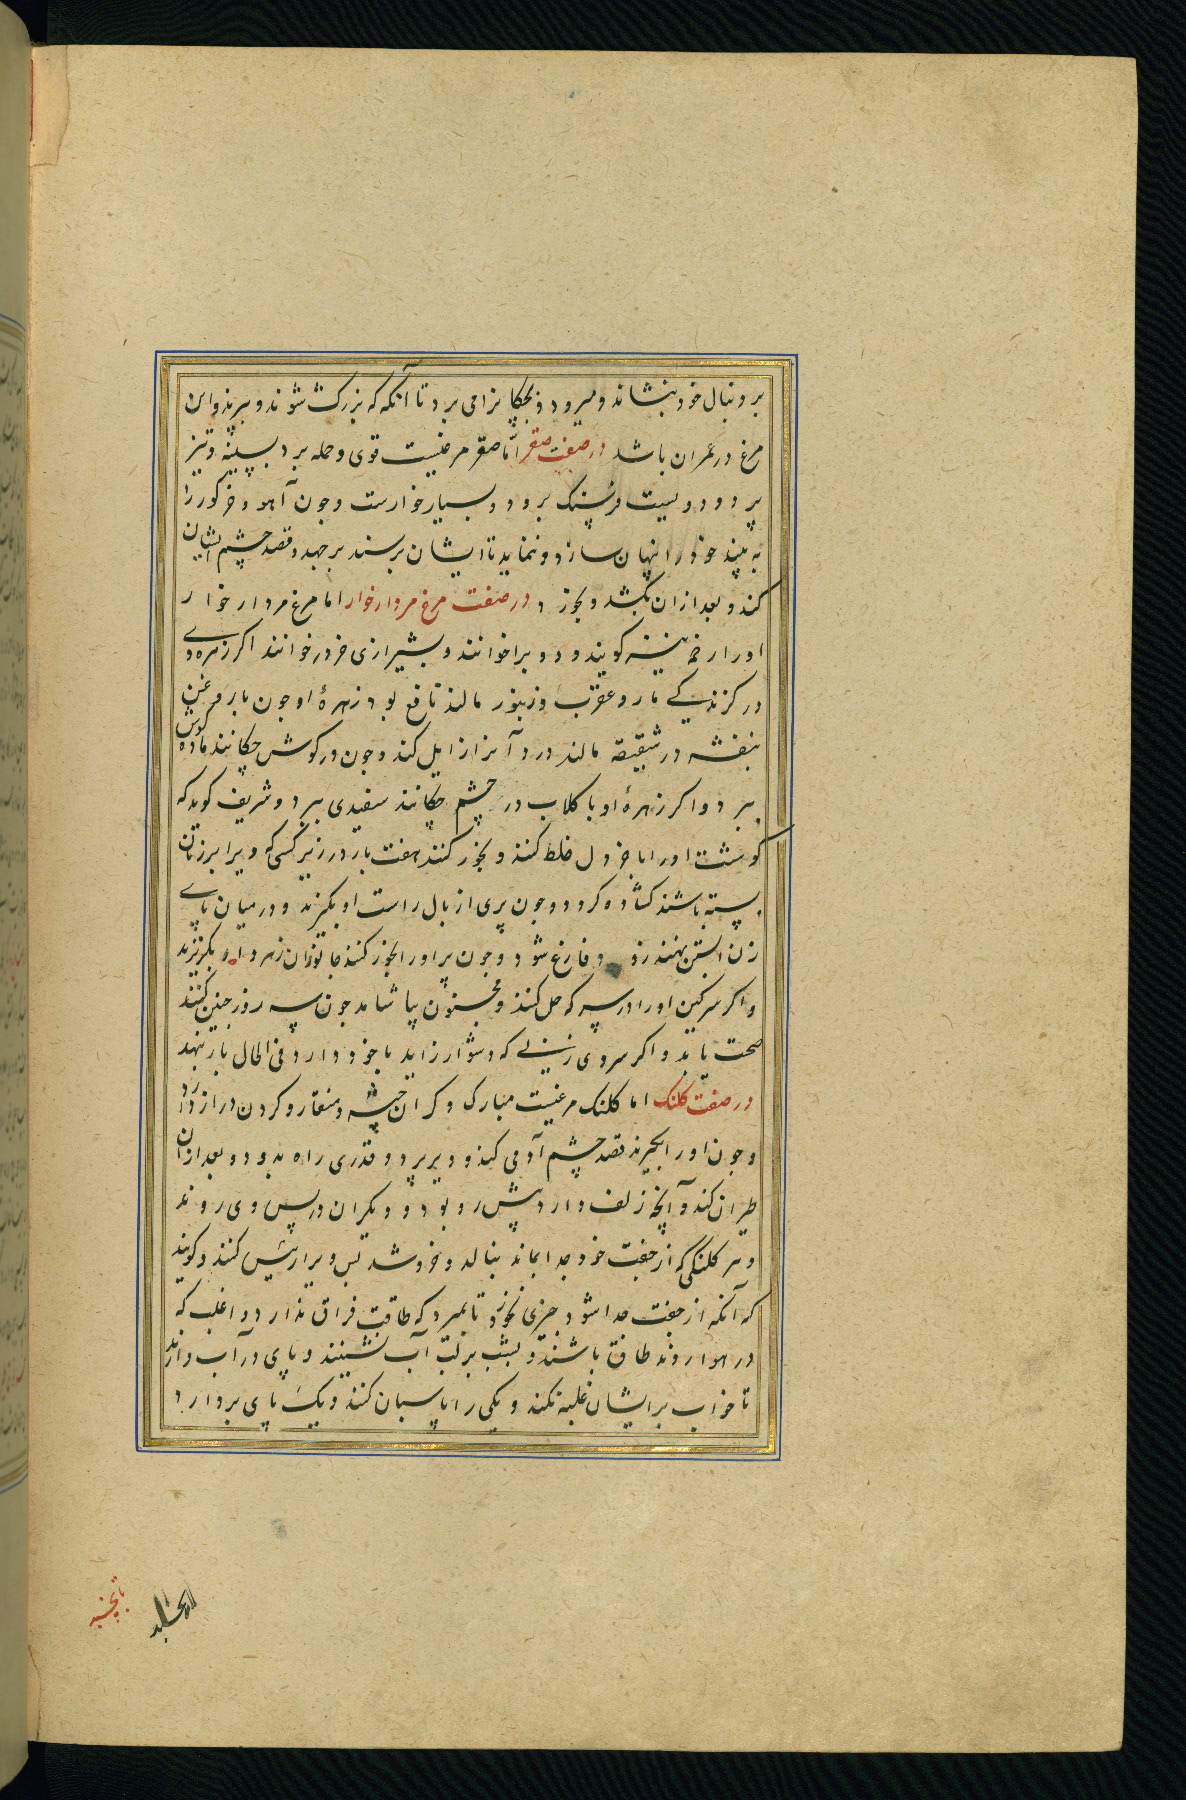 بر دنبال خود بنشاند و میرود و بچکانرا می برد تا آنکه که بزرک شوند و بپرند و این
مرغ در عمران باشد در صفت صقر اما صقر مرغیست قوی و حمله برد بسینه و تیز
پرد و دویست فرسنک برود و بسیار خوارست وچون آهو و خرکور را
به بیند خود را پنهان سازد و ننماید تا ایشان برسند برجهد و قصد چشم ایشان
کند و بعد ازان بکشد و بخورد در صفت مرغ مردارخوار اما مرغ مردار خوار
اورا رخمینه کویند و دوبرا خوانند و بشیرازی خردر خوانند اکر زهره وی
در کزندکی مار و عقرب و زنبور مالند نافع بود زهرهٔ او چون با روغن
بنفشه در شقیقه مالند درد آنرا زایل کند وچون در کوش چکانند ماده کوش
ببرد و اکر زهرهٔ او با کلاب در چشم چکانند سفیدی ببرد و شریف کوید که
کوشت اورا با خردل خلط کنند و بخور کنند هفت بار در زیر کسی که ویرا بر زنان
بسته باشند کشاده کردد وچون پری از بال راست او بکیرند و در میان پای
زن آبستن نهند زود فارغ شود وچون پر اورا بخور کنند جانوران زهردار بکریزند
و اکر سرکین اورا در سرکه حل کنند و مجنون بیاشامد چون سه روز چنین کنند
صحت یابد و اکر سر وی زنی که دشوار زاید با خود دارد فی الحال بار بنهد
در صفت کلنک اما کلنک مرغیست مبارک و کران جثه و منقار و کردن دراز دارد
وچون اورا بکیرند قصد چشم آدمی کند و دیر پرد و قدری راه بدود و بعد ازان
طیران کند و آنچه زلف دارد پیش رو بود و دیکران در پس وی روند
و هر کلنکی که از جفت خود جدا بماند بنالد و خروشد پس ویرا ریش کنند و کویند
که آنکه از جفت جدا شود چیزی نخورد تا بمیرد که طاقت فراق ندارد و اغلب که
در هوا روند طاق باشند و بشب بر لب آب نشینند و پای در آب دارند
تا خواب بر ایشان غلبه نکند و یکی را پاسبان کنند و یک پای بردارد